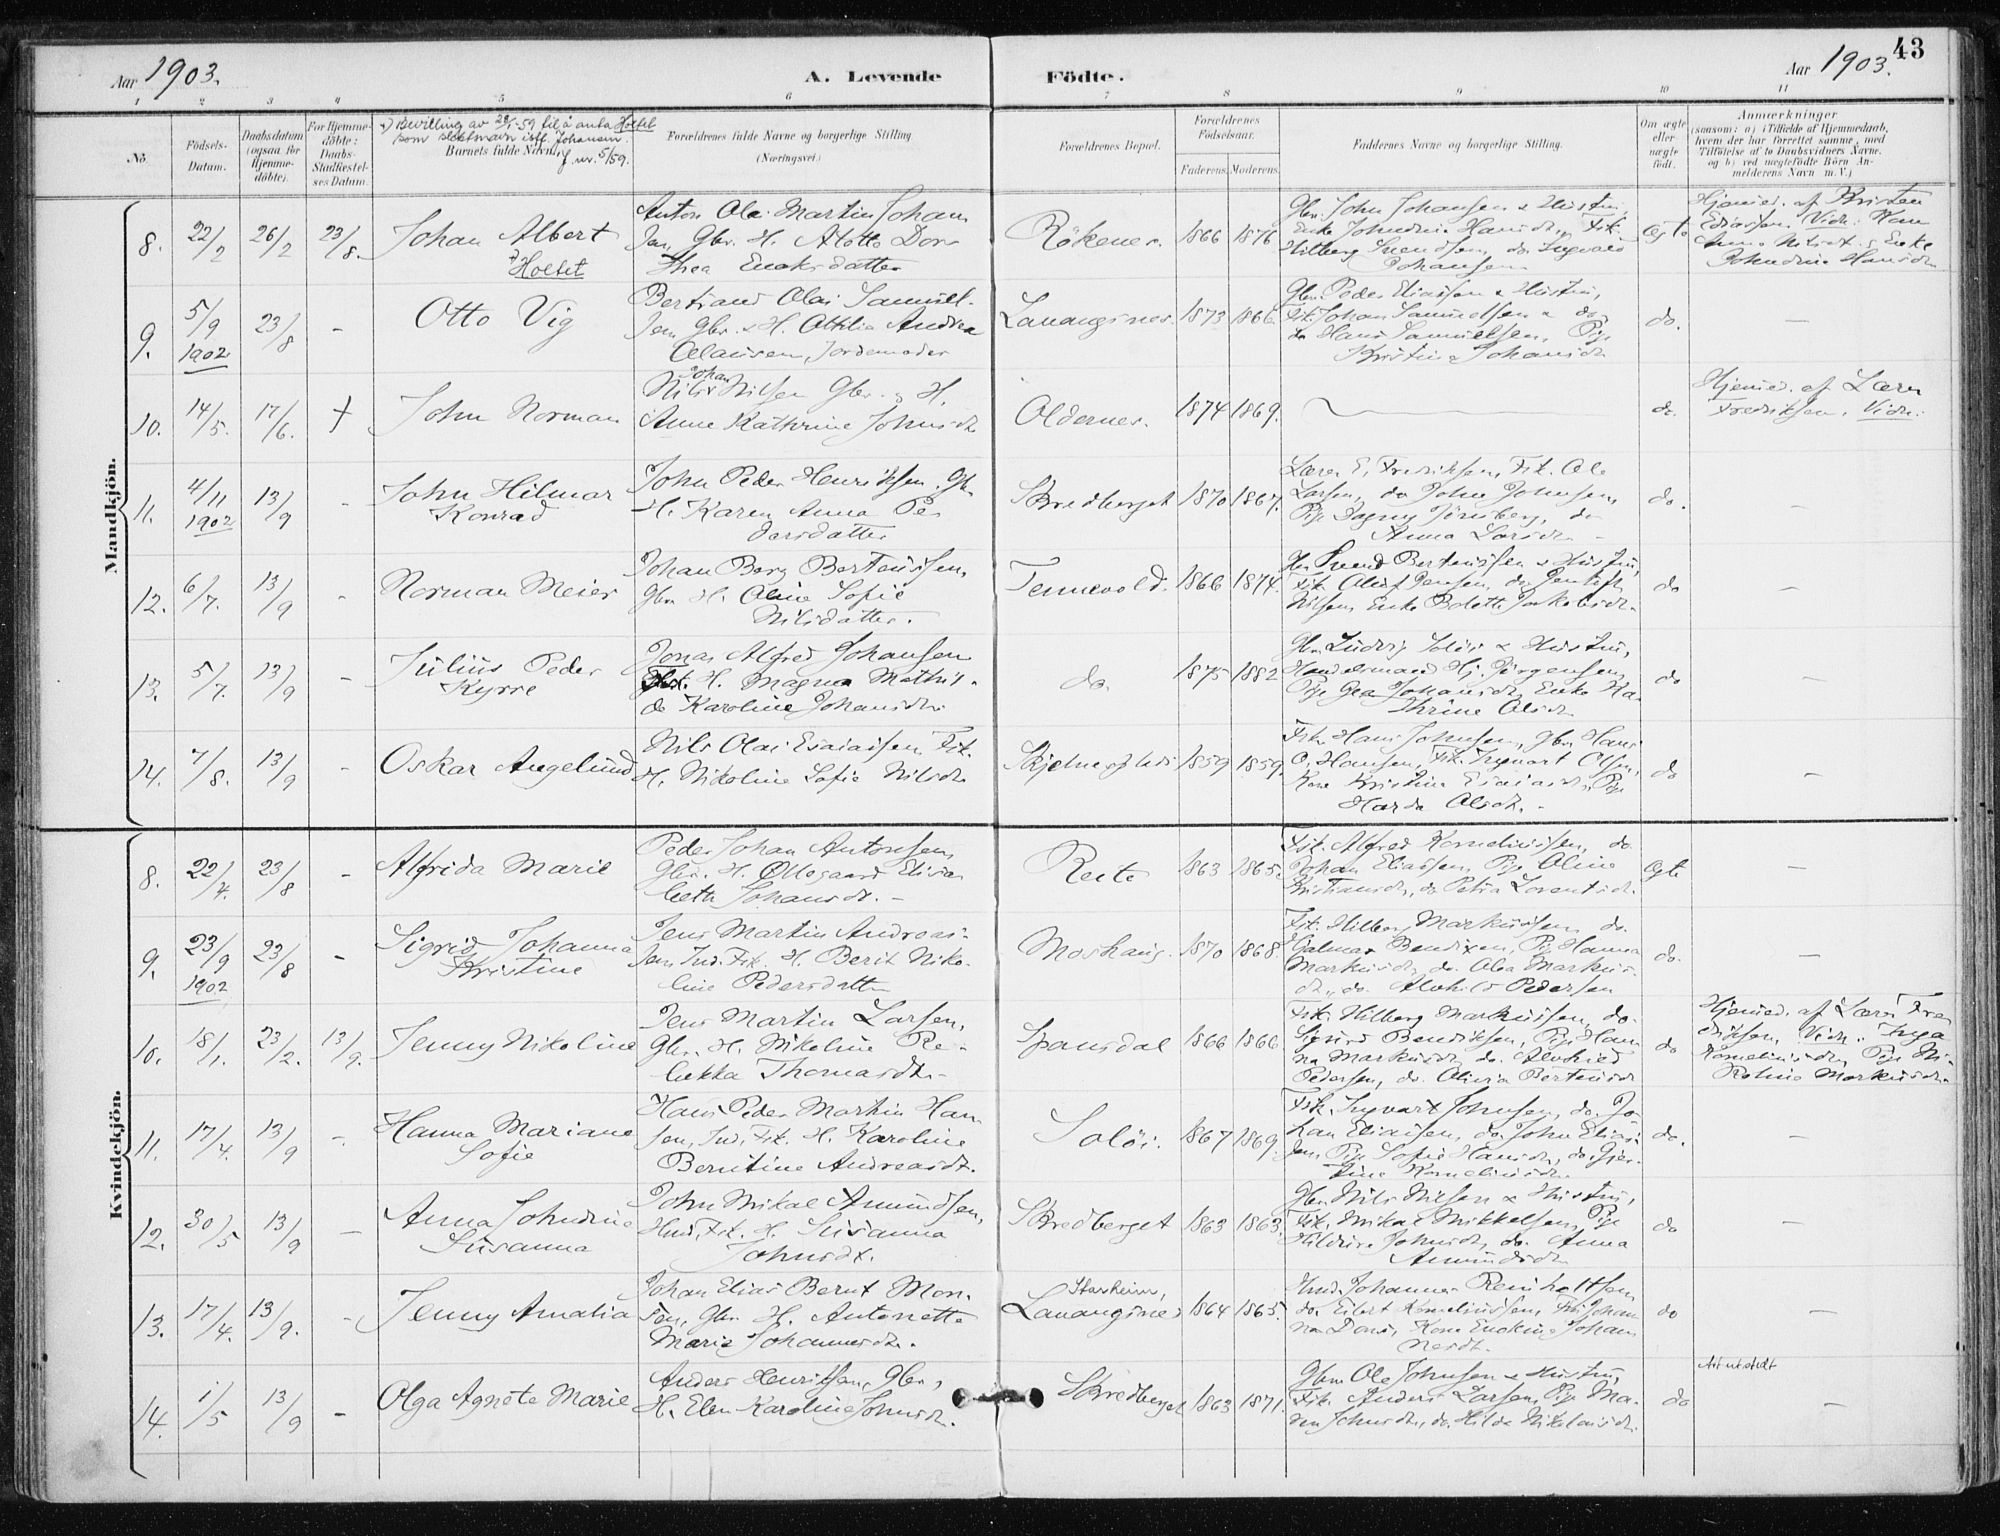 43
Aar 1903.
A. Levende
Födte.
Aar 1903.
1 2 3 4 5 6 7 8 9 10 11
No.
Födsels-
Datum.
Daabsdatum
(ogsaa for
Hjemme-
döbte).
For Hjemme-
döbte:
Daabs-
Stadfæstel-
ses Datum.
Bevilling av 28/1-59 til å anta Holtet
som slektsnavn istf. Johansen.
J. nr. 5/59.
Barnets fulde Navn.
Forældrenes fulde Navne og borgerlige Stilling
(Næringsvei.)
Forældrenes Bopæl.
Forældrenes
Födselsaar.
Faderens. Moderens.
Faddernes Navne og borgerlige Stilling.
Om ægte
eller
uægte
født.
Anmærkninger
(saasom: a) i Tilfælde af Hjemmedaab,
hvem der har forrettet samme, med
Tilföielse af to Daabsvidners Navne.
og b) ved uægtefödte Börn An-
melderens Navn m. V.)
Mandkjön.
8. 22/2 26/2 23/8.
Johan Albert
Holtet
Anton Olai Martin Johan
sen, Gbr. H. Dor
thea Enoksdatter
Rökenes. 1866 1876
Gbr. John Johansen & Hustru,
Enke Johndine Hansdt., Fisk.
Hilberg Svendsen, do Ingvald
Johansen
ægte
Hjemmed. af Kristen
Esaiassen. Vidn:
Anna Nilsdt. & Enke
Johndine Hansdt.
9. 5/9 1902 23/8 -
Otto Vig
Bertrand Olai Samuel-
sen, Gbr. & H. Othilie Andrea
Olausen, Jordemoder
Lavangsnes. 1873 1866
Gbr. Peder Eliassen & Hustru,
Fisk. Johan Samuelsen & do
do Hans Samuelsen, Pige
Kristine Johansdt.
do. -
10. 14/5. 17/6. +
John Norman
Johan
Nils Nilsen Gbr. & H.
Anne Kathrine Johnsdt.
Oldernes. 1874 1869.
do.
Hjemmed. af Lærer
Fredriksen. Vidn:
11. 4/11 1902 13/9 -
John Hilmar
Konrad
John Peder Henriksen, Gbr.
H. Karen Anna Pe
dersdatter
Skredberget 1870 1867.
Lærer E. Fredriksen, Fisk. Ole
Larsen, do John Johnsen,
Pige Dagny Tönsberg, do
Anna Larsdt.
do. -
12. 6/7. 13/9 -
Norman Meier
Johan Berg Berteussen,
Gbr. H. Oline Sofie
Nilsdatter.
Tennevold. 1866 1874.
Gbr. Svend Berteussen & Hustru,
Fisk. Olaf Jensen, do
Nilsen, Enke Bolette Jakobsdt.
do -
13. 5/7. 13/9 -
Julius Peder
Kyrre
Jonas Alfred Johansen
H. Magna Mathil-
de Karoline Johansdt.
do. 1875 1882
Gbr. Ludvig & Hustru,
Handelsmand Hj. Jörgensen,
Pige Johansdt, Enke Ka-
thrine Olsdt.
do -
14. 7/8. 13/9 -
Oskar Angelund
Nils Olai Esaiassen, Fisk.
H. Nikoline Sofie Nilsdt.
1859 1859.
Fisk. Hans Johnsen, Gbr. Hans
O. Hansen, Fisk. Ingvart Olsen,
Kone Kristine Esaiasdt., Pige
Harda Olsdt. -
do -
Kvindekjön.
8. 22/4. 23/8 -
Alfrida Marie
Peder Johan Antonsen,
Gbr. H. Ollegaard Elisa
beth Johansdt. -
1863 1865.
Fisk. Alfred Korneliussen, do.
Johan Eliassen, Pige Oline
Kristiansdt., do Petra Lorentsdt.
ægte -
9. 23/9 1902 23/8 -
Sigrid Johanna
Kristine
Jens Martin Andreas-
sen, Ind. Fisk. H. Berit Niko-
line Pedersdatter
Moshaug. 1870 1868.
Fisk. Hilberg Markussen, do.
Hjalmar Bendixen, Pige Hanna
Markusdt, do. Olea Markus-
dt., do. Alvhild Pedersen
do. -
10. 18/1. 23/2. 13/9.
Jenny Nikoline
Jens Martin Larsen,
Gbr. H. Nikoline Re-
bekka Thomasdt. -
Spansdal 1866 1866
Fisk. Hilberg Markussen, do.
Sigurd Bendiksen, Pige Han
na Markusdt, do. Alvhild
Pedersen, do. Olivia Berteusdt
do
Hjemmed. af Lærer Fre
driksen. Vidn: Inga
Korneliusdt, Pige Ni-
koline Markusdt.
11. 17/4. 13/9 -
Hanna Mariane
Sofie
Hans Peder Martin Han
sen, Ind. Fisk. H. Karoline
Berntine Andreasdt.
Solöi. 1867 1869.
Fisk. Ingvart Johnsen, do. Jo
han Eliassen, do. John Elias-
sen, Pige Sofie Hansdt, do. Gjer-
tine Korneliusdt.
do. -
12. 30/5 13/9 -
Anna Johndine
Susanna
John Mikal Amundsen,
Husm., Fisk. H. Susanna
Johnsdt.
Skredberget 1863 1863.
Gbr. Nils Nilsen & Hustru,
Fisk. Mikal Mikkelsen, Pige
Johnsdt, do. Anna
Amundsdt
do -
13. 17/4. 13/9. -
Jenny Amalia
Johan Elias Bernt Mon-
sen, Gbr. H. Antonette
Marie Johannesdt.
Starheim,
Lavangsnes 1864 1865.
Husm. Johannes Reinholtsen,
do. Eilert Korneliussen, Fisk. Johan
nes Kone Johan
nesdt.
do -
14. 1/5 13/9 -
Olga Agnete Marie
Anders Henriksen, Gbr.,
H. Elen Karoline Johnsdt.
Skredberget 1863 1871.
Gbr. Ole Johnsen & Hustru,
Fisk. Anders Larsen, Pige Ma-
ren Johnsdt., do. Hilda Nikolaisdt.
do
Att utstedt
-